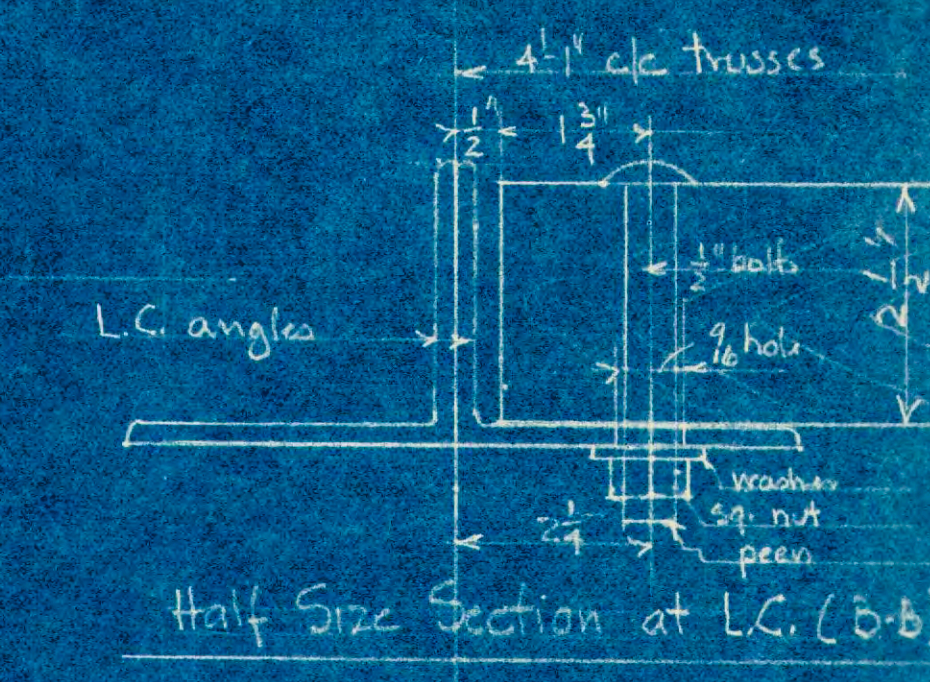 4'-1" c/c trusses
1/2" 1 3/4"
1/2" bolts
L.C. angles
9/16 hole
washer
sq. nut
2 1/4
peen
Half Size Section at L.C. (B-B